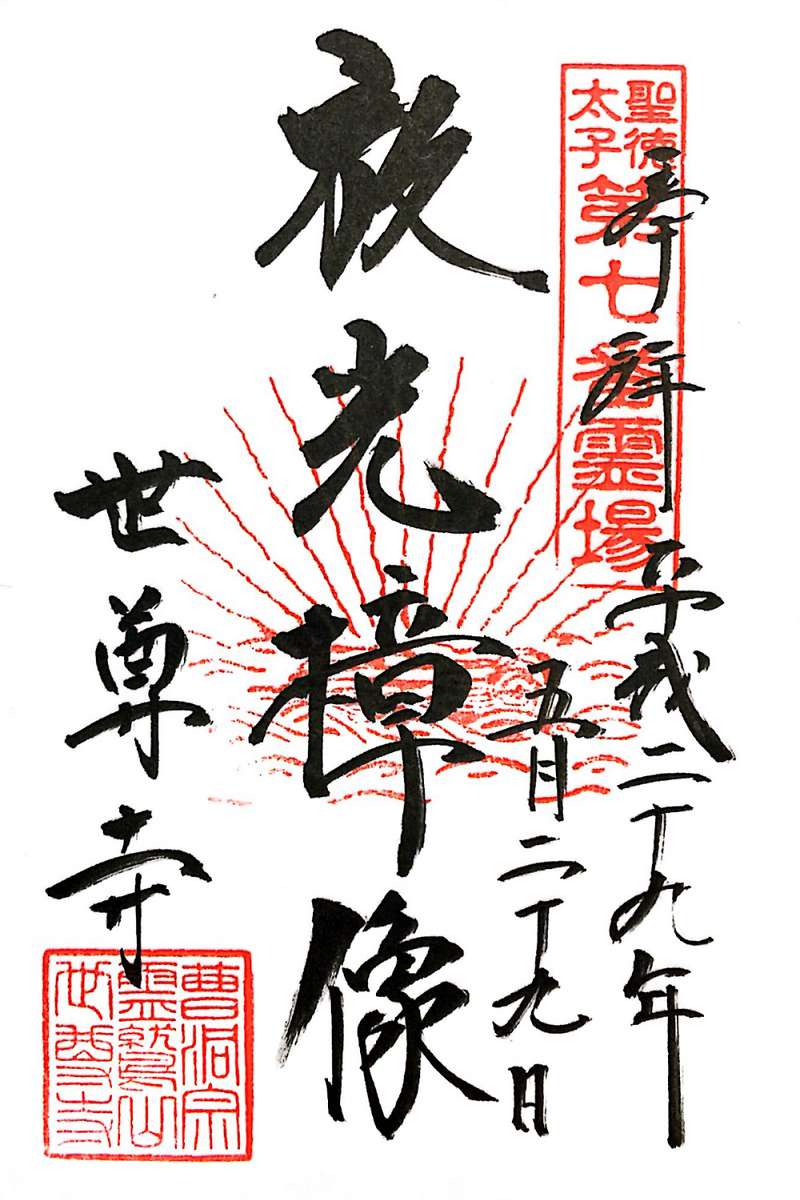 聖徳
太子
第七番霊場
奉拝
平成二十九年
五月二十九日
放光樟像
世尊寺
曹洞宗
霊鷲山
世尊寺